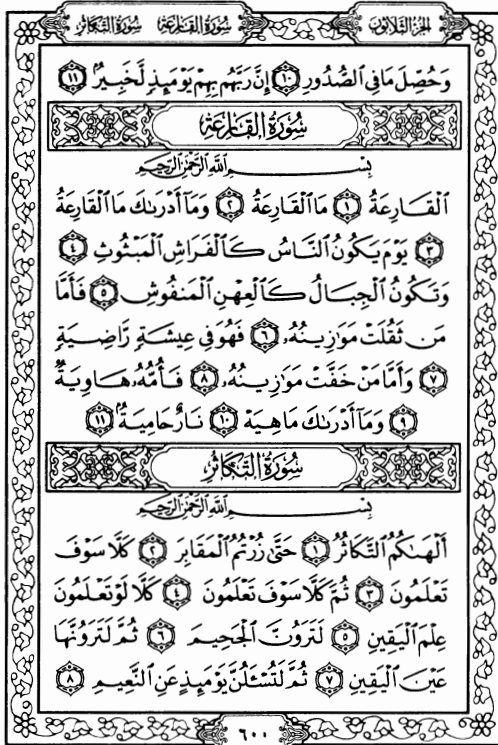 سُورَةُ التَّكَاثُرِ سُورَةُ القَارِعَةِ الجُزْءُ الثَّلَاثُونَ
وَحُصِّلَ مَا فِي ٱلصُّدُورِ ١٠ إِنَّ رَبَّهُم بِهِمْ يَوْمَئِذٍ لَّخَبِيرٌۢ ١١
سُورَةُ القَارِعَةِ
بِسْمِ ٱللَّهِ ٱلرَّحْمَٰنِ ٱلرَّحِيمِ
ٱلْقَارِعَةُ ١ مَا ٱلْقَارِعَةُ ٢ وَمَآ أَدْرَىٰكَ مَا ٱلْقَارِعَةُ
٣ يَوْمَ يَكُونُ ٱلنَّاسُ كَٱلْفَرَاشِ ٱلْمَبْثُوثِ ٤
وَتَكُونُ ٱلْجِبَالُ كَٱلْعِهْنِ ٱلْمَنفُوشِ ٥ فَأَمَّا
مَن ثَقُلَتْ مَوَٰزِينُهُۥ ٦ فَهُوَ فِى عِيشَةٍ رَّاضِيَةٍ
٧ وَأَمَّا مَنْ خَفَّتْ مَوَٰزِينُهُۥ ٨ فَأُمُّهُۥ هَاوِيَةٌ
٩ وَمَآ أَدْرَىٰكَ مَا هِيَهْ ١٠ نَارٌ حَامِيَةٌۢ ١١
سُورَةُ التَّكَاثُرِ
بِسْمِ ٱللَّهِ ٱلرَّحْمَٰنِ ٱلرَّحِيمِ
أَلْهَىٰكُمُ ٱلتَّكَاثُرُ ١ حَتَّىٰ زُرْتُمُ ٱلْمَقَابِرَ ٢ كَلَّا سَوْفَ
تَعْلَمُونَ ٣ ثُمَّ كَلَّا سَوْفَ تَعْلَمُونَ ٤ كَلَّا لَوْ تَعْلَمُونَ
عِلْمَ ٱلْيَقِينِ ٥ لَتَرَوُنَّ ٱلْجَحِيمَ ٦ ثُمَّ لَتَرَوُنَّهَا
عَيْنَ ٱلْيَقِينِ ٧ ثُمَّ لَتُسْـَٔلُنَّ يَوْمَئِذٍ عَنِ ٱلنَّعِيمِ ٨
٦٠٠